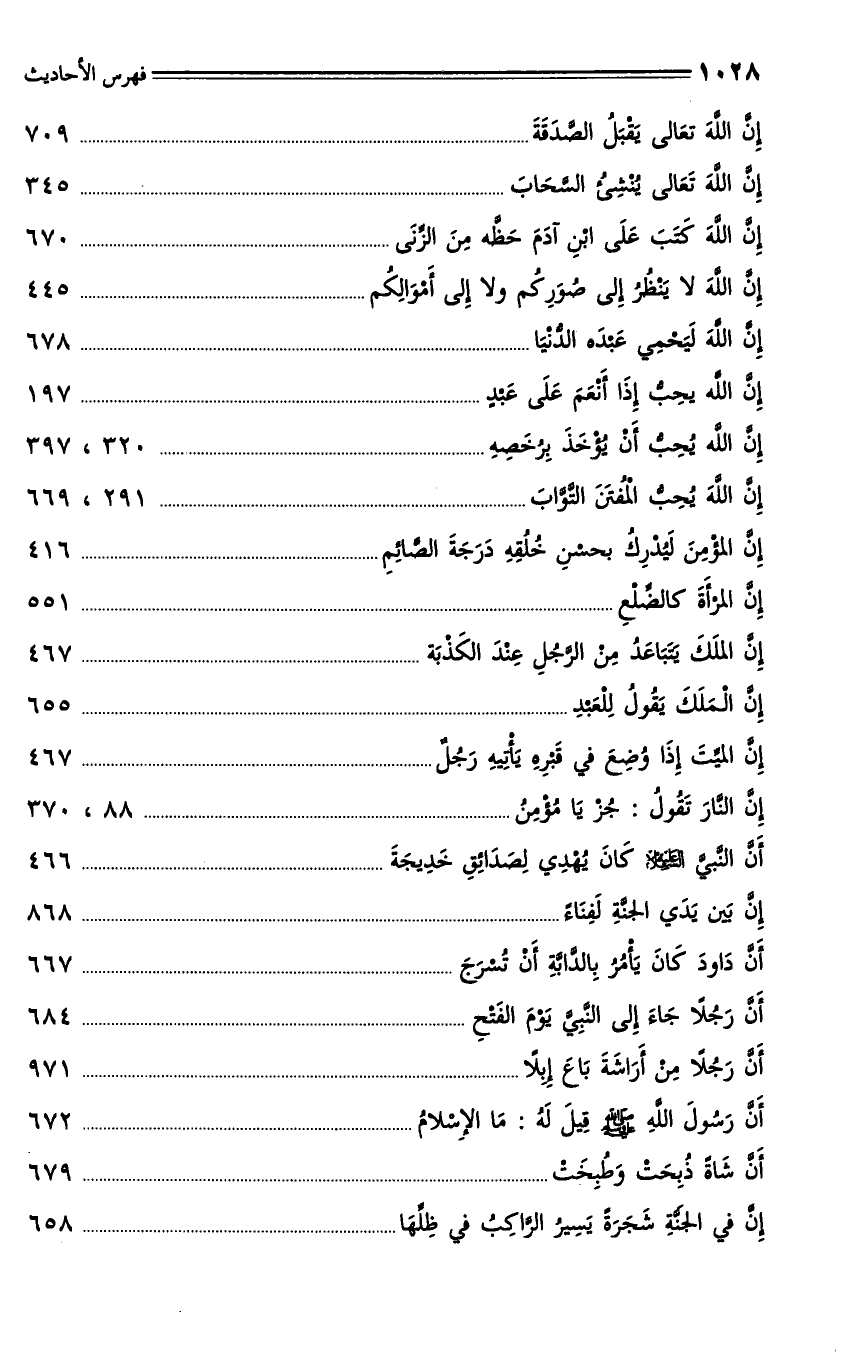 ١٠٢٨ فهرس الأحاديث
إِنَّ اللَّهَ تعَالى يَقْبَلُ الصَّدَقَةَ ٧٠٩
إِنَّ اللَّهَ تَعَالى يُنْشِئُ السَّحَابَ ٣٤٥
إِنَّ اللَّهَ كَتَبَ عَلَى ابْنِ آدَمَ حَظَّه مِنَ الزِّنَى ٦٧٠
إِنَّ اللَّهَ لا يَنْظُرُ إِلى صُوَرِكُم ولا إِلى أَمْوَالِكُم ٤٤٥
إِنَّ اللَّهَ لَيَحْمِي عَبْدَه الدُّنْيَا ٦٧٨
إِنَّ اللَّه يحِبُّ إِذَا أَنْعَمَ عَلَى عَبْدٍ ١٩٧
إِنَّ اللَّه يُحِبُّ أَنْ يُؤْخَذَ بِرُخَصِهِ ٣٢٠ ، ٣٩٧
إِنَّ اللَّهَ يُحِبُّ الْمُفتَنَ التَّوَّابَ ٢٩١ ، ٦٦٩
إِنَّ المؤْمِنَ لَيُدْرِكُ بحسْنِ خُلُقِهِ دَرَجَةَ الصَّائِمِ ٤١٦
إِنَّ المرْأَةَ كالضِّلْعِ ٥٥١
إِنَّ الملَكَ يَتَبَاعَدُ مِنْ الرَّجُلِ عِنْدَ الكَذْبَة ٤٦٧
إِنَّ الْمَلَكَ يَقُولُ لِلْعَبْدِ ٦٥٥
إِنَّ الميِّتَ إِذَا وُضِعَ في قَبْرِهِ يَأْتِيهِ رَجُلٌ ٤٦٧
إِنَّ النَّارَ تَقُولُ : جُزْ يَا مُؤْمِنُ ٨٨ ، ٣٧٠
أَنَّ النَّبيَّ كَانَ يُهْدِي لِصَدَائِقِ خَدِيجَةَ ٤٦٦
إِنَّ بَين يَدَي الجنَّةِ لَفِنَاءً ٨٦٨
أَنَّ دَاودَ كَانَ يَأْمُرُ بِالدَّابَّةِ أَنْ تُسْرَجَ ٦٦٧
أَنَّ رَجُلًا جَاءَ إِلى النَّبِيَّ يَوْمَ الفَتْحِ ٦٨٤
أَنَّ رَجُلًا مِنْ أَرَاشَةَ بَاعَ إِبِلًا ٩٧١
أَنَّ رَسُولَ اللَّهِ ﷺ قِيلَ لَهُ : مَا الإِسْلامُ ٦٧٢
أَنَّ شَاةً ذُبِحَتْ وَطُبِخَتْ ٦٧٩
إِنَّ في الجنَّةِ شَجَرَةً يَسِيرُ الرَّاكِبُ في ظِلِّهَا ٦٥٨